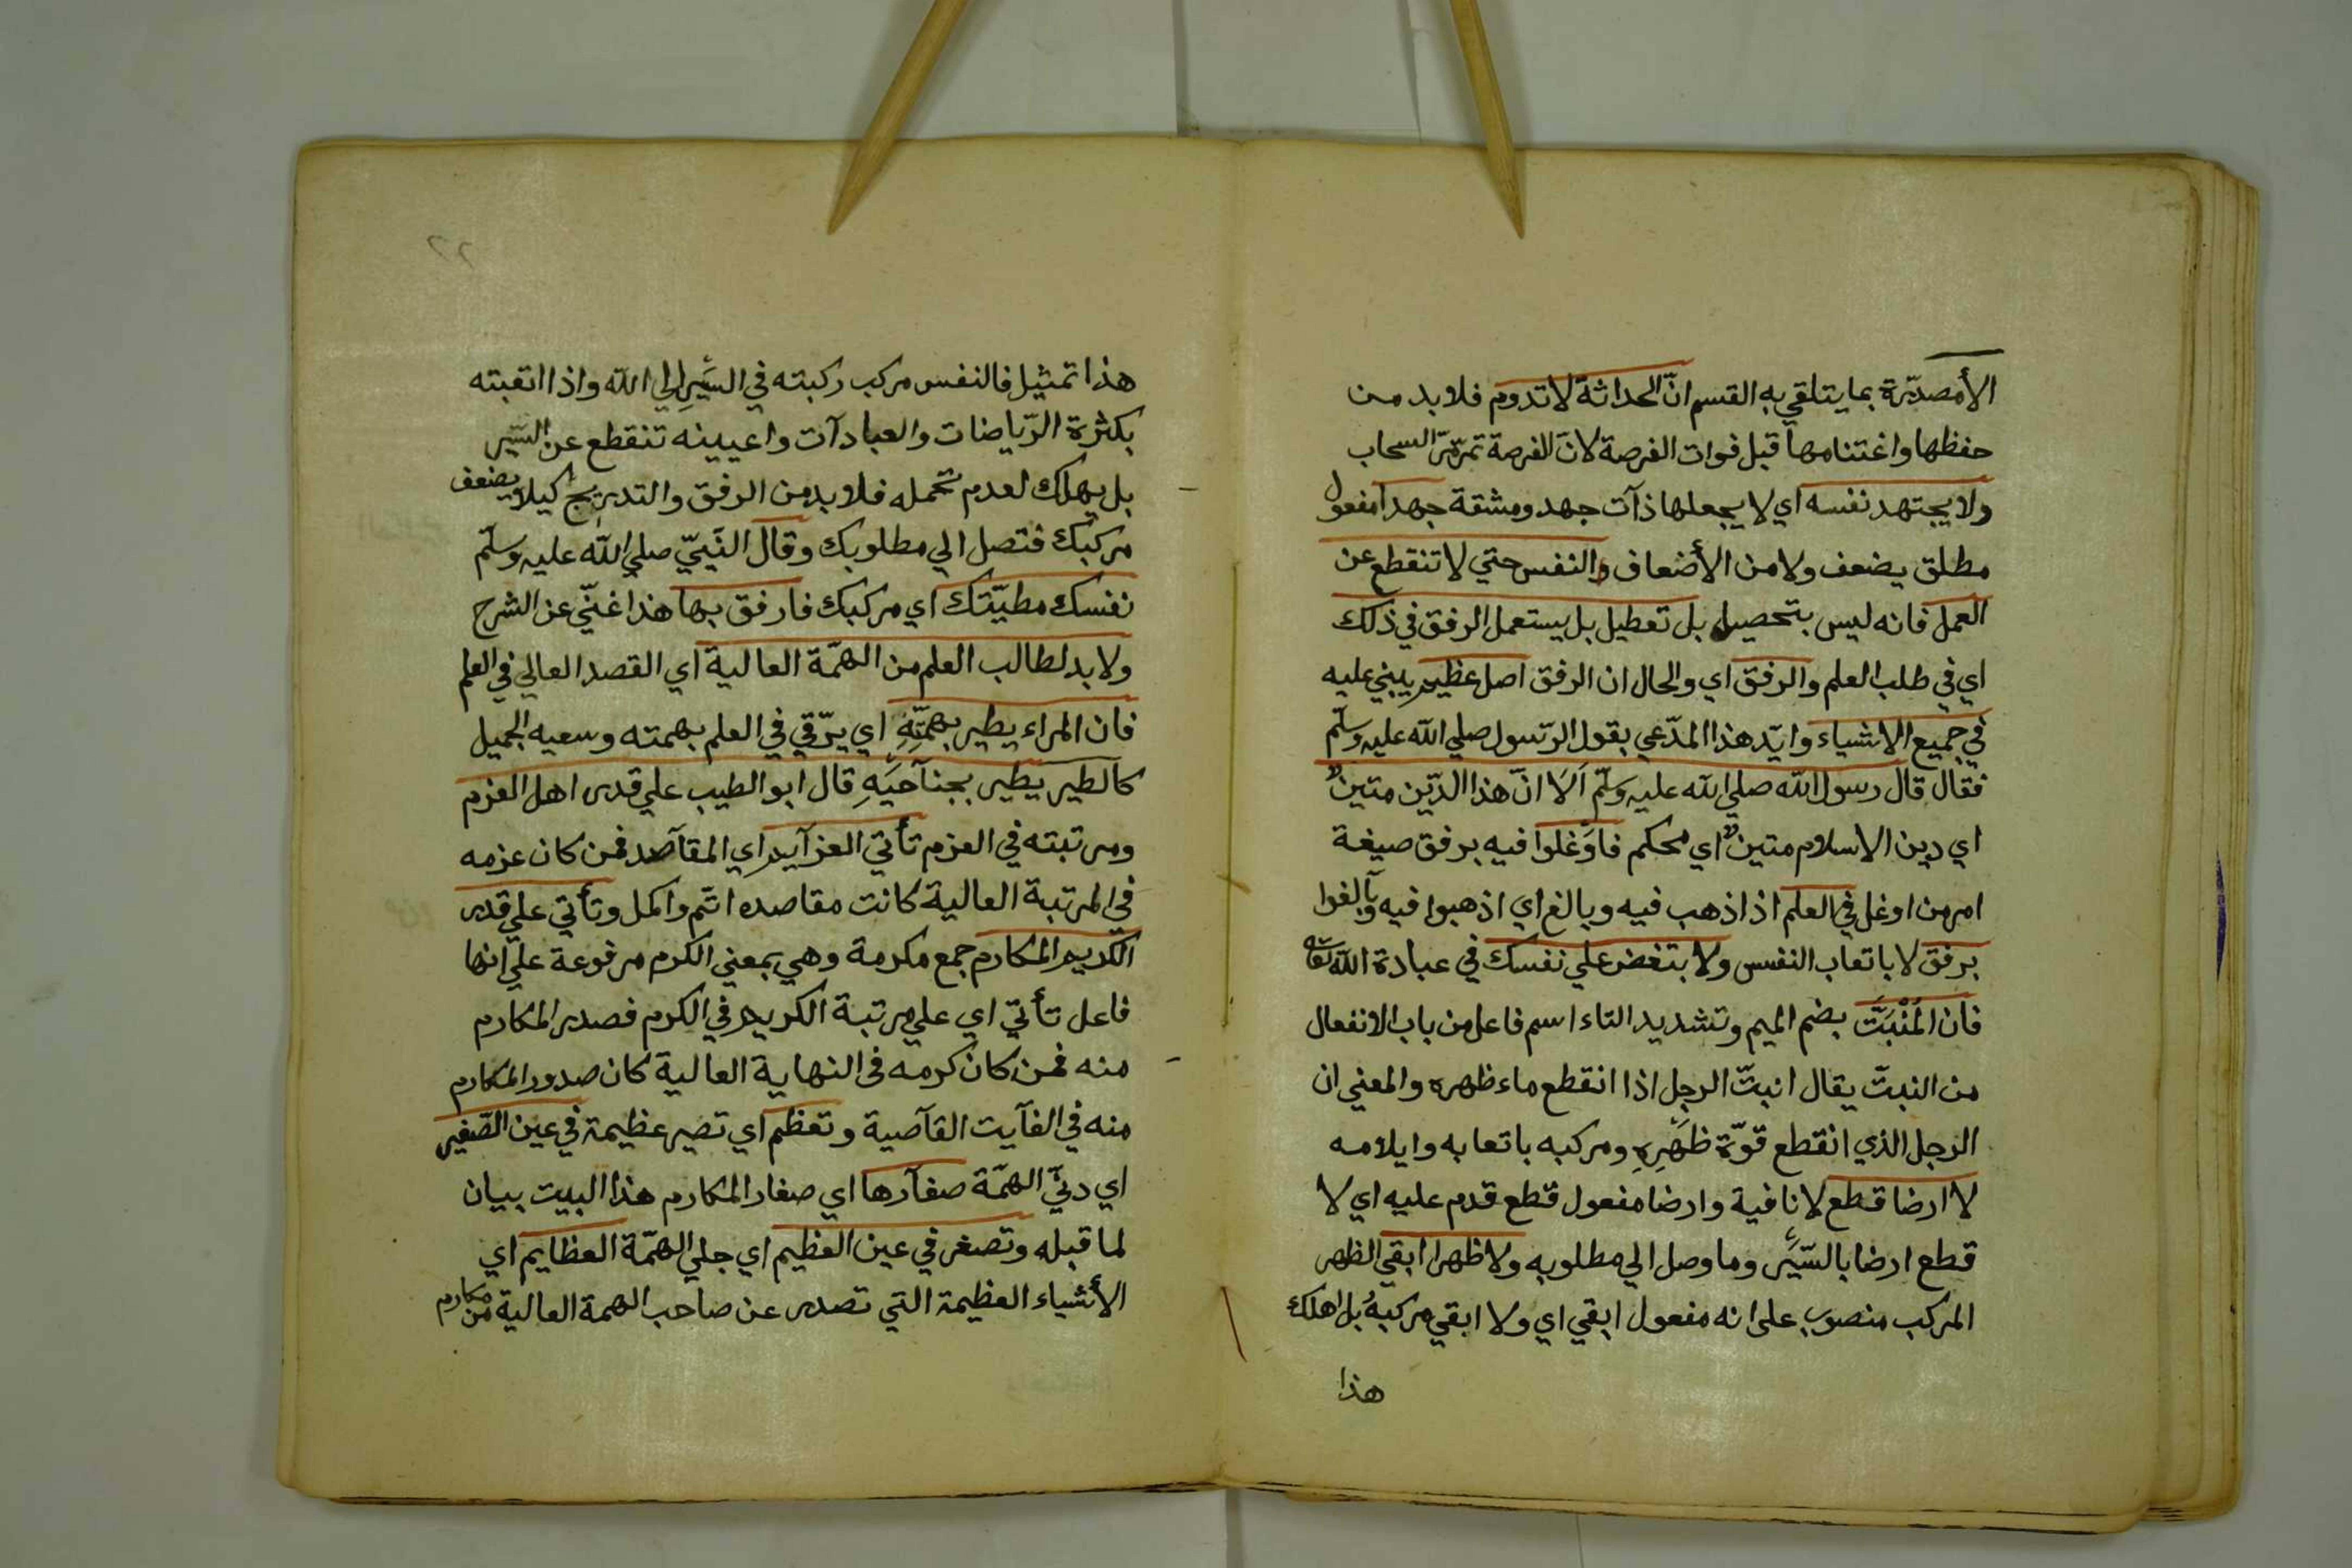 الأمصدّرة بما يتلقي به القسم انّ الحداثة لا تدوم فلا بد من
حفظها واغتنامها قبل فوات الفرصة لانّ الفرصة تمرّ مرّ السحاب
ولا يجتهد نفسه اي لا يجعلها ذآت جهد ومشقة جهدا مفعول
مطلق يضعف ولا من الأضعاف والنفس حتي لا تنقطع عن
العمل فانه ليس بتحصيل بل تعطيل بل يستعمل الرفق في ذلك
اي في طلب العلم والرفق اي والحال ان الرفق اصل عظيم يبني عليه
في جميع الاشياء وايّد هذا المدّعي بقول الرّسول صلي الله عليه وسلّم
فقال قال رسول الله صلي الله عليه وسلّم اَلَا انّ هذا الدّين متينٌ
اي دين الاسلام متينٌ اي محكم فاوَغلوا فيه برفق صيغة
امر من اوغل في العلم اذ اذهب فيه وبالغ اي اذهبوا فيه وبآلغوا
برفق لا باتعاب النفس ولا بتغض علي نفسك في عبادة الله تعالى
فان المُنْبَتَّ بضم الميم وتشديد التاء اسم فاعل من باب الانفعال
من النبتّ يقال انبتّ الرجل اذا انقطع ماء ظهره والمعني ان
الرجل الذي انقطع قوّة ظَهَرِهِ ومركبه باتعابه وايلامه
لا ارضا قطع لا نافية وارضا مفعول قطع قدم عليه اي لا
قطع ارضا بالسّيَر وما وصل الي مطلوبه ولا ظهرا ابقي الظهر
المركب منصوب على انه مفعول ابقي اي ولا ابقي مركبهُ بل اهلك
هذا
٢٢
هذا تمثيل فالنفس مركب ركبته في السَّيرِ الي الله واذا اتعبته
بكثرة الرّياضات والعبادآت واعيينه تنقطع عن السّير
بل يهلك لعدم تحمله فلا بد من الرفق والتدريج كيلا يضعف
مركبك فتصل الي مطلوبك وقال النّبيّ صلي الله عليه وسلّم
نفسك مطيّتك اي مركبك فارفق بها هذا غنّي عن الشرح
ولا بد لطالب العلم من الهمّة العالية اي القصد العالي في العلم
فان المراء يطير بهمّتِهِ اي يرّقي في العلم بهمته وسعيه الجميل
كالطير يطير بجنآحيَهِ قال ابو الطيب علي قدر اهل العزم
ومرتبته في العزم تأتي العزآيم اي المقآصد فمن كان عزمه
في المرتبة العالية كانت مقاصده اتم واكمل وتأتي علي قدر
الكريم المكارم جمع مكرمة وهي بمعني الكرم مرفوعة علي انها
فاعل تأتي اي علي مرتبة الكريم في الكرم فصدر المكارم
منه فمن كان كرمه فى النهاية العالية كان صدور المكارم
منه في الغآيت القآصية وتعظم اي تصير عظيمة في عين الصّغير
اي دنيّ الهمّة صغآرها اي صغار المكارم هذا البيت بيان
لما قبله وتصغر في عين العظيم اي جلي الهمّة العظايم اي
الأشياء العظيمة التي تصدر عن صاحب الهمة العالية من مكارم